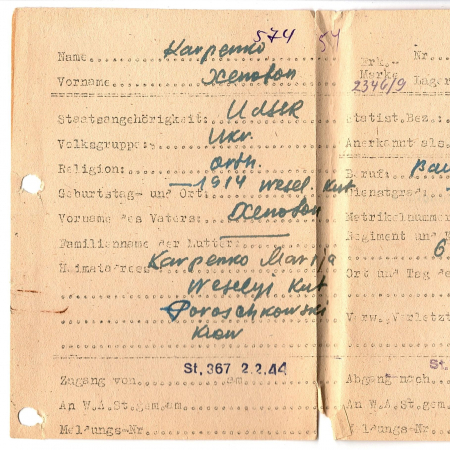 574 54
Name Karpenko Nr
Vorname Xenofon Erk. Marke 2346/9 Lager
Staatsangehörigkeit: UdSSR Statist.Bez.:
Volksgruppe: Ukr. Anerkannt als
Religion: orth. Beruf: Bau
Geburtstag- und Ort: — 1914 Wesel. Kut Dienstgrad:
Vorname des Vaters: Xenofon Matrikelnummer
Familienname der Mutter: Regiment und
Heimatadresse Karpenko Marija 6
Weselyi Kut Ort und Tag de
Poroschkowski Verw.Verletzt
Kiew
St. 367 2.2.44 St.
Zugang von am Abgang nach
An W.A.St.gem.am An W.A.St.gem.
Meldungs-Nr Meldungs-Nr